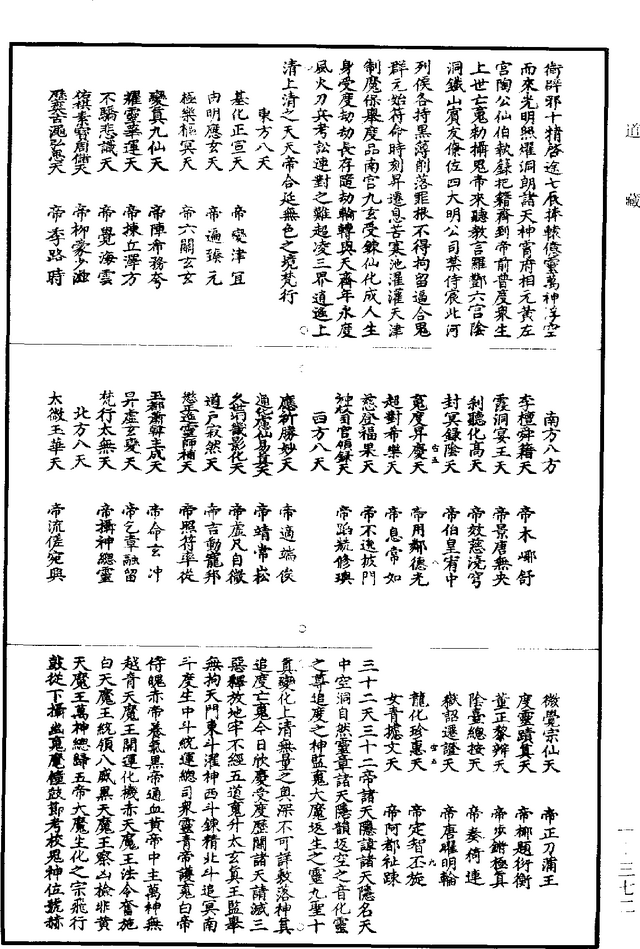 道藏
衛辟邪十精啓途七辰捧轅億靈萬神浮空
而來光明照耀洞朗諸天神霄府相元黃左
宮陶公仙伯執錄把籍齎到帝前普度衆生
上世亡冤勑攝鬼帝來聽教言羅酆六宮陰
洞鐵山賓友僚佐四大明公司禁侍宸北河
列侯各持黑簿削落罪根不得拘留逼合鬼
群元始符命時刻昇遷息苦寒池灌灌天津
制魔保舉度品南宮九玄受鍊仙化成人生
身受度劫劫長存隨劫輪轉與天齊年永度
風火刀兵考訟連對之難超凌三界逍遙上
清上清之天天帝合延無色之境梵行
東方八天
基化正宣天 帝變津宜
由明應玄天 帝遍臻元
極樂樞冥天 帝六關玄玄
變真九仙天 帝陳布務夸
耀靈華運天 帝揀立澤方
不驕悲識天 帝覺海雲
帝柳愛少
帝季路
南方八方
李檀舜籍天 帝木 舒
霞洞宴王天 帝景唐無央
刹聽化高天 帝效慈澆穹
封冥錄陰天 帝伯皇宥中
寬度昇慶天 帝用鄰德光
超對希樂天 帝息常如
慈登福果天 帝不逸披門
帝蹈航修璵
西方八天
應新勝妙天 帝適端俟
帝靖常崧
帝虛尺自微
道戶寂然天 帝言動寵邦
帝照符率從
帝命玄冲
昇虛玄變天 帝乞章融留
梵行太無天 帝攝神總靈
北方八天
太微玉華天 帝流僐宛興
微覺宗仙天 帝正刀蒲王
度靈蹟真天 帝椰題衍衡
董正黎辨天 帝步 極真
陰臺總按天 帝奏倚連
嶽詔遷證天 帝唐曜明輪
龍化珍惠天 帝定智丕旋
女青摭文天 帝阿都祉踈
三十二天三十二帝諸天隱諱諸天隱名天
中空洞自然靈章諸天隱韻返空之音化靈
之尊追度之神監寃大魔返生之靈九聖十
真變化上清無量之奧深不可詳敷落神真
追度亡寃今日欣慶受度歷關諸天請滅三
惡釋放地牢不經五道魂升太玄真王監舉
無拘天門東斗濯神西斗鍊精北斗追冥南
斗度生中斗統運總司衆靈青帝護寃白帝
侍魄赤帝養氣黑帝通血黃帝中主萬神無
越青天魔王開運化機赤天魔王法令奮施
白天魔王統領八威黑天魔王察凶檢非黃
天魔王萬神總歸五帝大魔生化之宗飛行
鼓從下攝幽寃魔幢鼓節考校鬼神位號赫